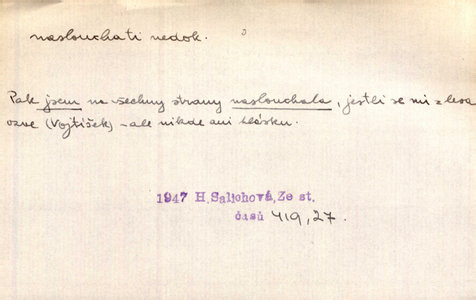 naslouchati nedok.
Pak jsem na všechny strany naslouchala, jestli se mi z lesa
ozve (Vojtíšek) – ale nikde ani hlásku.
1947 H. Salichová, Ze st.
časů 419, 27.